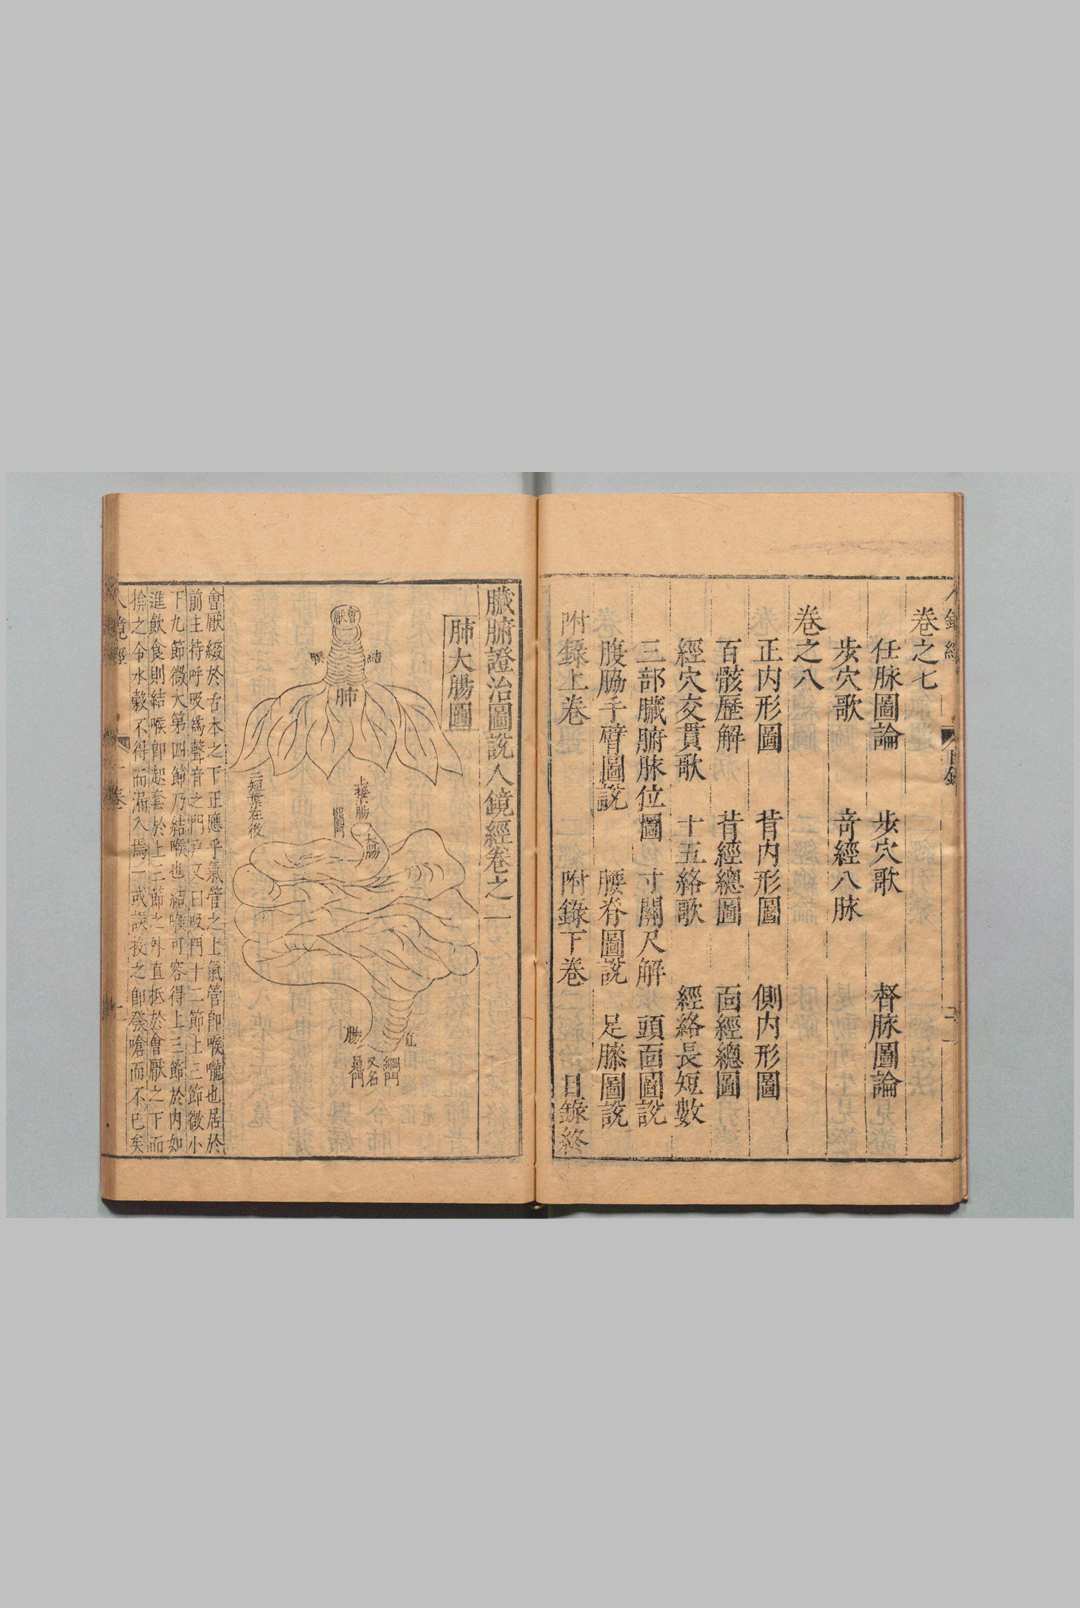 人鏡經
目錄
卷之七
任脉圖論 步穴歌 督脉圖論
步穴歌 奇經八脉
卷之八
正內形圖 背內形圖 側內形圖
百骸歷解 背經總圖 面經總圖
經穴交貫歌 十五絡歌 經絡長短數
三部臟腑脉位圖 寸關尺解 頭面圖說
腹脇手臂圖說 腰脊圖說 足膝圖說
附錄上卷 附錄下卷 目錄終
臟腑證治圖說人鏡經卷之一
肺大腸圖
會厭
結
喉
肺
三短葉在後
上接小腸
闌門
大腸
直
腸
又名
魄門
會厭綴於舌本之下正應乎氣管之上氣管卽喉嚨也居於
前主待呼吸爲聲音之門戶又曰吸門十二節上三節微小
下九節微大第四節乃結喉也結喉可容得上三節於內如
進飲食則結喉卽起套於上三節之外直抵於會厭之下而
揜之令水穀不得而漏入焉一或誤投之卽發嗆而不已矣
人鏡經
一卷
一